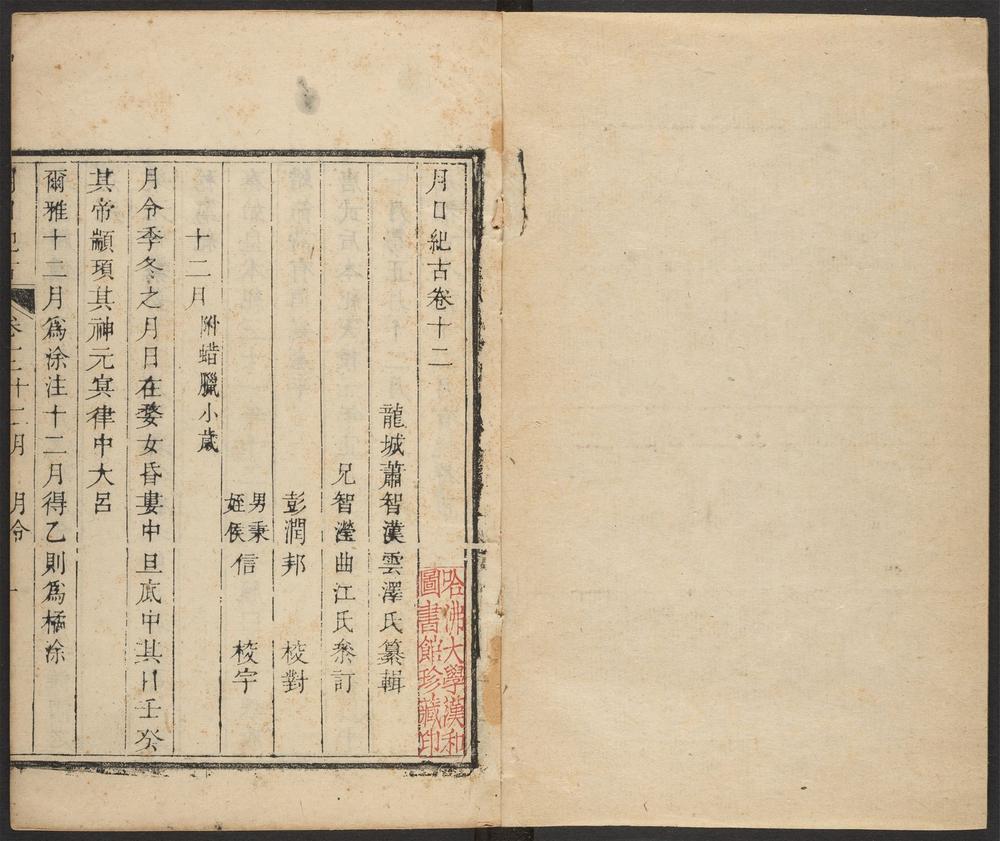 月日紀古卷十二
龍城蕭智漢雲澤氏纂輯
兄智瀅曲江氏叅訂
彭潤邦 校對
男秉
姪侯信 校字
十二月附蜡臘小歲
月令季冬之月日在婺女昏婁中旦底中其日壬癸
其帝顓頊其神元㝠律中大呂
爾雅十二月爲涂注十二月得乙則爲橘涂
卷十二十二月 月令 一
哈佛大學漢和
圖書館珍藏印